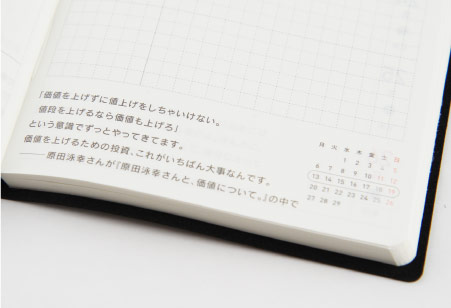 「価値を上げずに値上げをしちゃいけない。
値段を上げるなら価値も上げろ」
という意識でずっとやってきてます。
価値を上げるための投資、これがいちばん大事なんです。
——原田泳幸さんが『原田泳幸さんと、価値について。』の中で
月 火 水 木 金 土 日
1 2 3 4 5
6 7 8 9 10 11 12
13 14 15 16 17 18 19
20 21 22 23 24 25 26
27 28 29